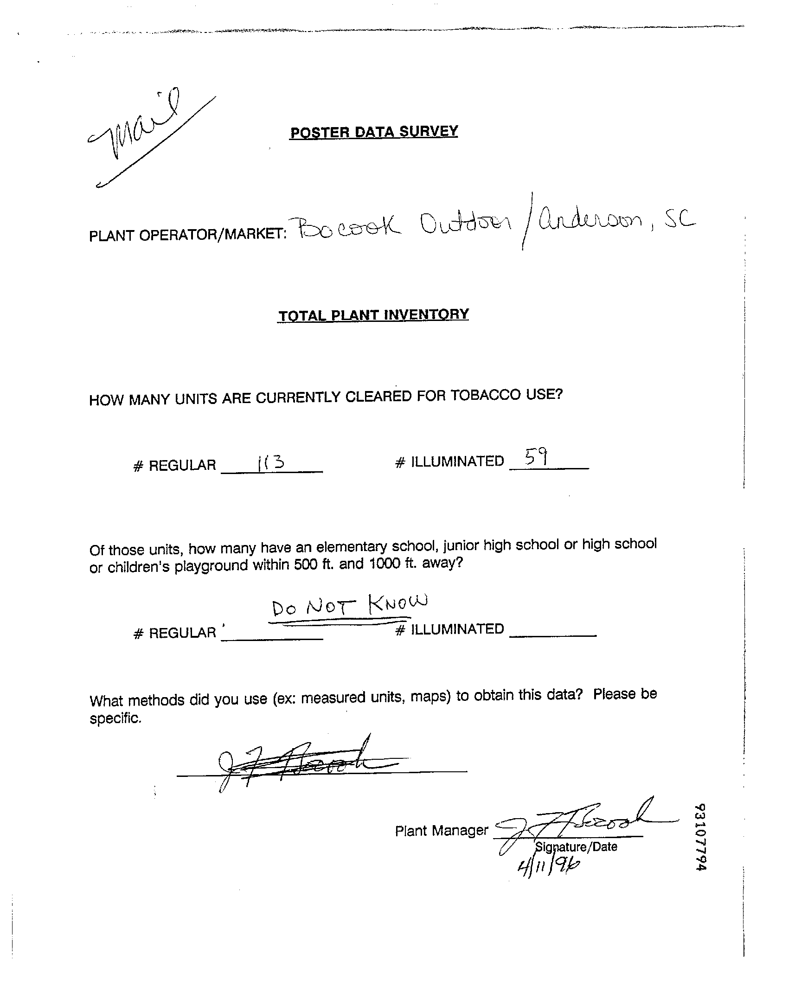 Mail
POSTER DATA SURVEY
PLANT OPERATOR/MARKET: Bocook Outdoor / Anderson, SC
TOTAL PLANT INVENTORY
HOW MANY UNITS ARE CURRENTLY CLEARED FOR TOBACCO USE?
# REGULAR 113 # ILLUMINATED 59
Of those units, how many have an elementary school, junior high school or high school
or children's playground within 500 ft. and 1000 ft. away?
DO NOT KNOW
# REGULAR # ILLUMINATED
What methods did you use (ex: measured units, maps) to obtain this data? Please be
specific.
J F Bocook
Plant Manager J F Bocook
Signature/Date
4/11/96
93107794